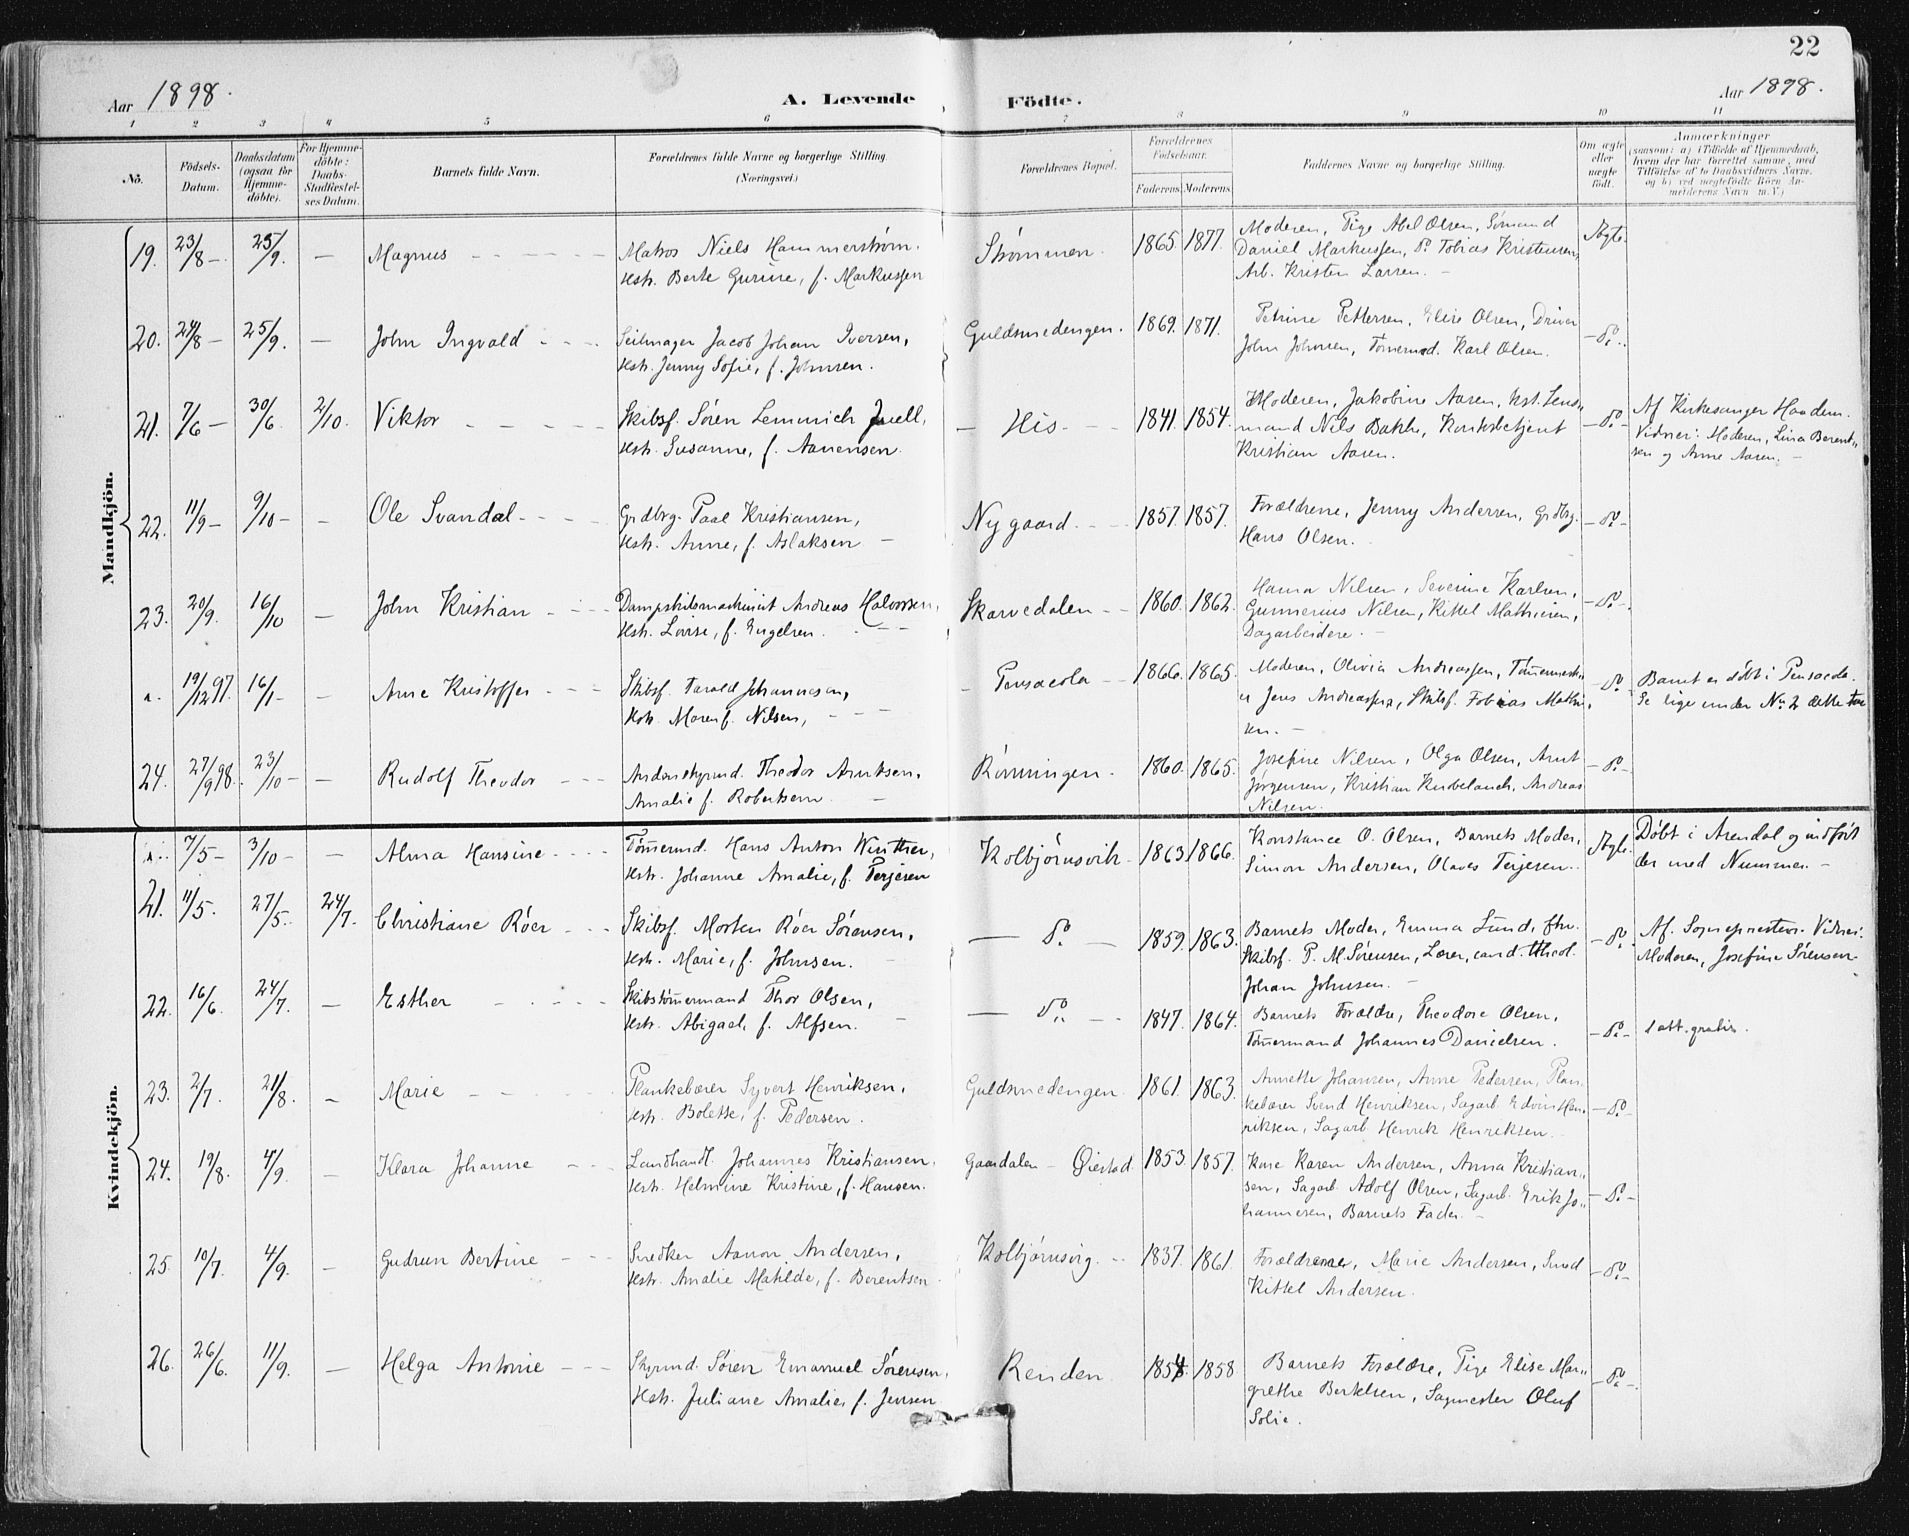 22
Aar 1898.
A. Levende Födte.
Aar 1898.
1 2 3 4 5 6 7 8 9 10 11
No.
Födsels-Datum.
Daabsdatum (ogsaa for Hjemme-döbte).
For Hjemme-döbte: Daabs-Stadfæstel-ses Datum.
Barnets fulde Navn.
Forældrenes fulde Navne og borgerlige Stilling. (Næringsvei.)
Forældrenes Bopæl.
Forældrenes Födselsaar.
Faderens. Moderens.
Faddernes Navne og borgerlige Stilling.
Om ægte eller uægte födt.
Anmærkninger
(saasom: a) i Tilfælde af Hjemmedaab,
hvem der har forrettet samme, med
Tilföielse af to Daabsvidners Navne,
og b) ved uægtefödte Börn An-
melderens Navn m. V.)
Mandkjön.
19. 23/8 – 25/9. – Magnus
Matros Niels Hammerstrøm.
Hstr. Berte Gurine, f. Markussen
Strømmen. 1865. 1877.
Moderen, Pige Abel Olsen, Sømand
Daniel Markussen, do Tobias Kristensen,
Arb. Kristen Larsen. –
Ægte.
20. 24/8 – 25/9. – John Ingvald
Seilmager Jacob Johan Iversen,
Hstr. Jenny Sofie, f. Johnsen.
Guldsmedengen. 1869. 1871.
Petrine Pettersen, Elise Olsen, Driver
John Johnsen, Tømermd. Karl Olsen.
– do –
21. 7/6 – 30/6. 2/10. Viktor
Skibsf. Søren Lemmich Juell,
Hstr. Susanne, f. Aanensen.
– His. – 1841. 1854.
Moderen, Jakobine Aasen, Hst. Lens-
mand Nils Bakke, Kontorbetjent
Kristian Aasen.
– do –
Af Kirkesanger Haadem.
Vidner: Moderen, Lina Berent-
sen og Anne Aasen. –
22. 11/9 – 9/10 – – Ole Svandal
Grdbrg. Paal Kristiansen,
Hstr. Anne, f. Aslaksen –
Nygaard. 1857. 1857.
Forældrene, Jenny Andersen, Grdbrg.
Hans Olsen.
– do –
23. 20/9. 16/10 – John Kristian
Dampskibsmaskinist Andreas Halvorsen,
Hstr. Lovise, f. Engelsen.
Skarvedalen 1860. 1862.
Hanna Nilsen, Severine Karlsen,
Gunnerius Nilsen, Kittel Mathiesen,
Dagarbeidere. –
– do –
a. 19/12 97. 16/1 – – Arne Kristoffer
Skibsf. Tarald Johannesen,
Hstr. Maren f. Nilsen,
– Pensacola – 1866. 1865.
Moderen, Olivia Andreassen, Tømmermand
Jens Andreassen, Skibsf. Tobias Mathi-
sen. –
– do
Barnet er døbt i Pensacola.
Se lige under No 2 dette
24. 27/9 98. 23/10 – – Rudolf Theodor
Theodor Arntsen,
Amalie f. Robertsen –
Rønningen. 1860. 1865.
Josefine Nilsen, Olga Olsen, Arnt
Jørgensen, Kristian, Andreas
Nilsen.
– do –
Kvindekjön.
a. 7/5 – 3/10 – – Alma Hansine
Tømermd. Hans Anton Winther,
Hstr. Johanne Amalie, f. Terjesen
Kolbjørnsvik. 1863. 1866.
Konstance O. Olsen, Barnets Moder,
Simon Andersen, Olaves Terjesen.
Ægte.
Døbt i Arendal og indført
der med Nummer. –
21. 11/5. 27/5. 24/7. Christiane Röer
Skibsf. Morten Röer Sörensen,
Hstr. Marie, f. Johnsen.
– do – 1859. 1863.
Barnets Moder, Emma Lund, fhv.
Skibsf. P. M. Sørensen, Lærer, cand. theol.
Johan Johnsen. –
– do
Af Sognepresten. Vidner:
Moderen, Josefine Sörensen
22. 16/6. 24/7. – Esther
Skibstømermand Thor Olsen,
Hstr. Abigael, f. Alfsen. –
– do – 1847. 1864.
Barnets Forældre, Theodore Olsen,
Tømermand Johannes Danielsen.
– do –
1 att. gratis.
23. 2/7. 21/8. – Marie
Plankebærer Syvert Henriksen,
Hstr. Bolette, f. Pedersen.
Guldsmedengen. 1861. 1863.
Annette Johansen, Anne Pedersen, Plan-
kebærer Svend Henriksen, Sagarb. Edvin Hen-
riksen, Sagarb Henrik Henriksen.
– do
24. 19/8. 4/9. – Klara Johanne
Landhandl. Johannes Kristiansen,
Hstr. Helmine Kristine, f. Hansen.
Gaardalen – Øiestad 1853. 1857.
Kone Karen Andersen, Anna Kristian-
sen, Sagarb. Adolf Olsen, Sagarb. Erik Jo-
hannesen, Barnets Fader. –
– do –
25. 10/7. 4/9. – Gudrun Bertine
Snedker Aanon Andersen,
Hstr. Amalie Matilde, f. Berentsen
Kolbjørnsvig. 1837. 1861.
Forældrene, Marie Andersen, Smed
Kittel Andersen.
– do –
26. 26/6. 11/9. – Helga Antonie
Styrmd. Sören Emanuel Sörensen,
Hstr. Juliane Amalie, f. Jensen
Renden 1854. 1858
Barnets Forældre, Pige Elise Mar-
grethe Bertelsen, Sagmester Oluf
Solie.
– do –